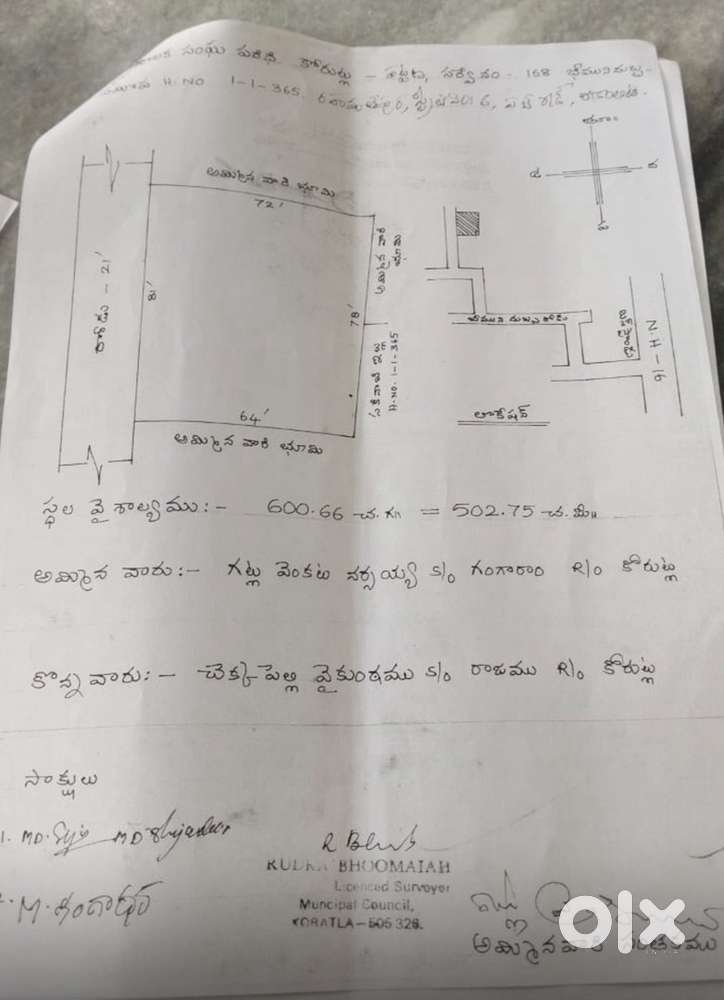 సంఘ పరిధి కోరుట్ల - పట్టణ, సర్వే నం - 168 భీమునిదుబ్బ-
H.NO 1-1-365.
అమ్మిన వారి భూమి
72'
రోడు - 21'
81'
78'
అమ్మిన వారి భూమి
H.NO. 1-1-365
64'
అమ్మిన వారి భూమి
తూ
ద
ఉ
ప
భీముని దుబ్బ రోడు
N.H-16
లొకేషన్
స్థల వైశాల్యము:- 600.66 చ.గ॥ = 502.75 చ.మీ॥
అమ్మిన వారు:- గట్లు వెంకట నర్సయ్య S/o గంగారాం R/o కోరుట్ల
కొన్న వారు:- చెక్కపెల్లి వైకుంఠము S/o రాజము R/o కోరుట్ల
సాక్షులు
1. MD.
M. గంగాధర్
R Bh
RUDRA BHOOMAIAH
Licenced Surveyor
Muncipal Council,
KORATLA-505 326.
అమ్మినవారి సంతకము
olx